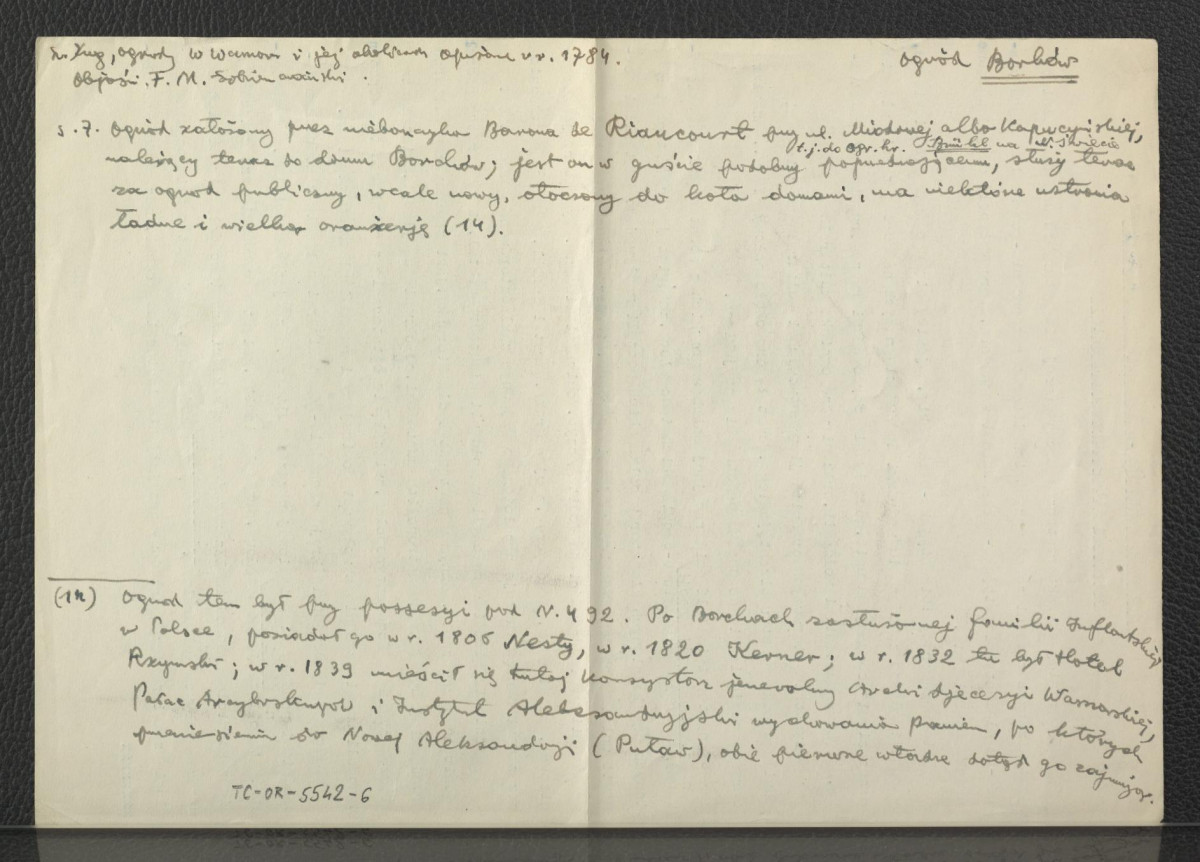 Sz. Zug, ogrody w Warszawie i jej okolicach opisane w r. 1784.
Objaśn. F. M. Sobieszczański.
Ogród Borchów
s. 7. Ogród założony przez nieboszczyka Barona de Riaucourt przy ul. Miodowej albo Kapucyńskiej,
t.j. do ogr. hr. Brühl na N. Świecie
należący teraz do domu Borchów; jest on w guście podobny poprzedzającemu, służy teraz
za ogród publiczny, wcale nowy, otoczony do koła domami, ma niektóre ustronia
ładne i wielką oranżerję (14).
(14) Ogród ten był przy possesyi pod N. 492. Po Borchach zasłużonej familii Inflantskiej
w Polsce, posiadał go w r. 1806 Nesty, w r. 1820 Kerner; w r. 1832 tu był Hotel
Rzymski; w r. 1839 mieścił się tutaj Konsystorz jeneralny Archidjecezyi Warszawskiej,
Pałac Arcybiskupów i Instytut Aleksandryjski wychowania panien, po których
przeniesieniu do Nowej Aleksandryi (Puław), obie pierwsze władze dotąd go zajmują.
TC-OR-5542-6